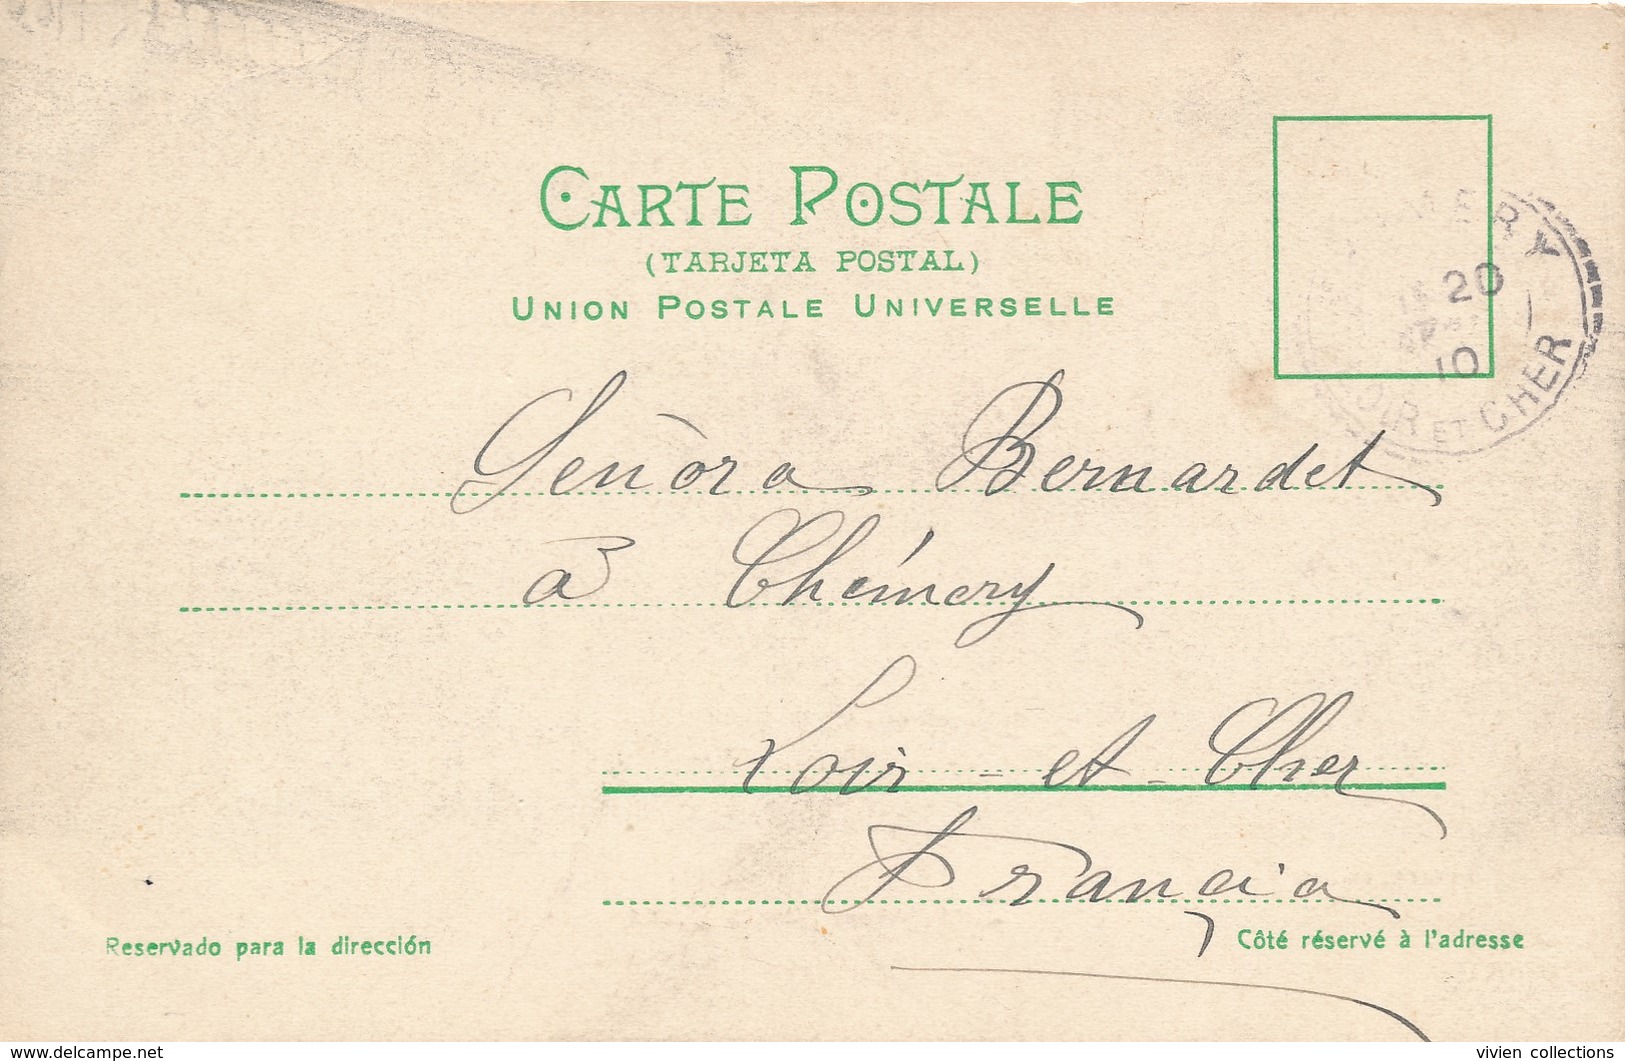 CARTE POSTALE
(TARJETA POSTAL)
UNION POSTALE UNIVERSELLE
MERY
20
10
LOIR ET CHER
Señora Bernardet
à Chémery
Loir-et-Cher
Françia
Reservado para la dirección
Côté réservé à l'adresse
www.delcampe.net
vivien collections